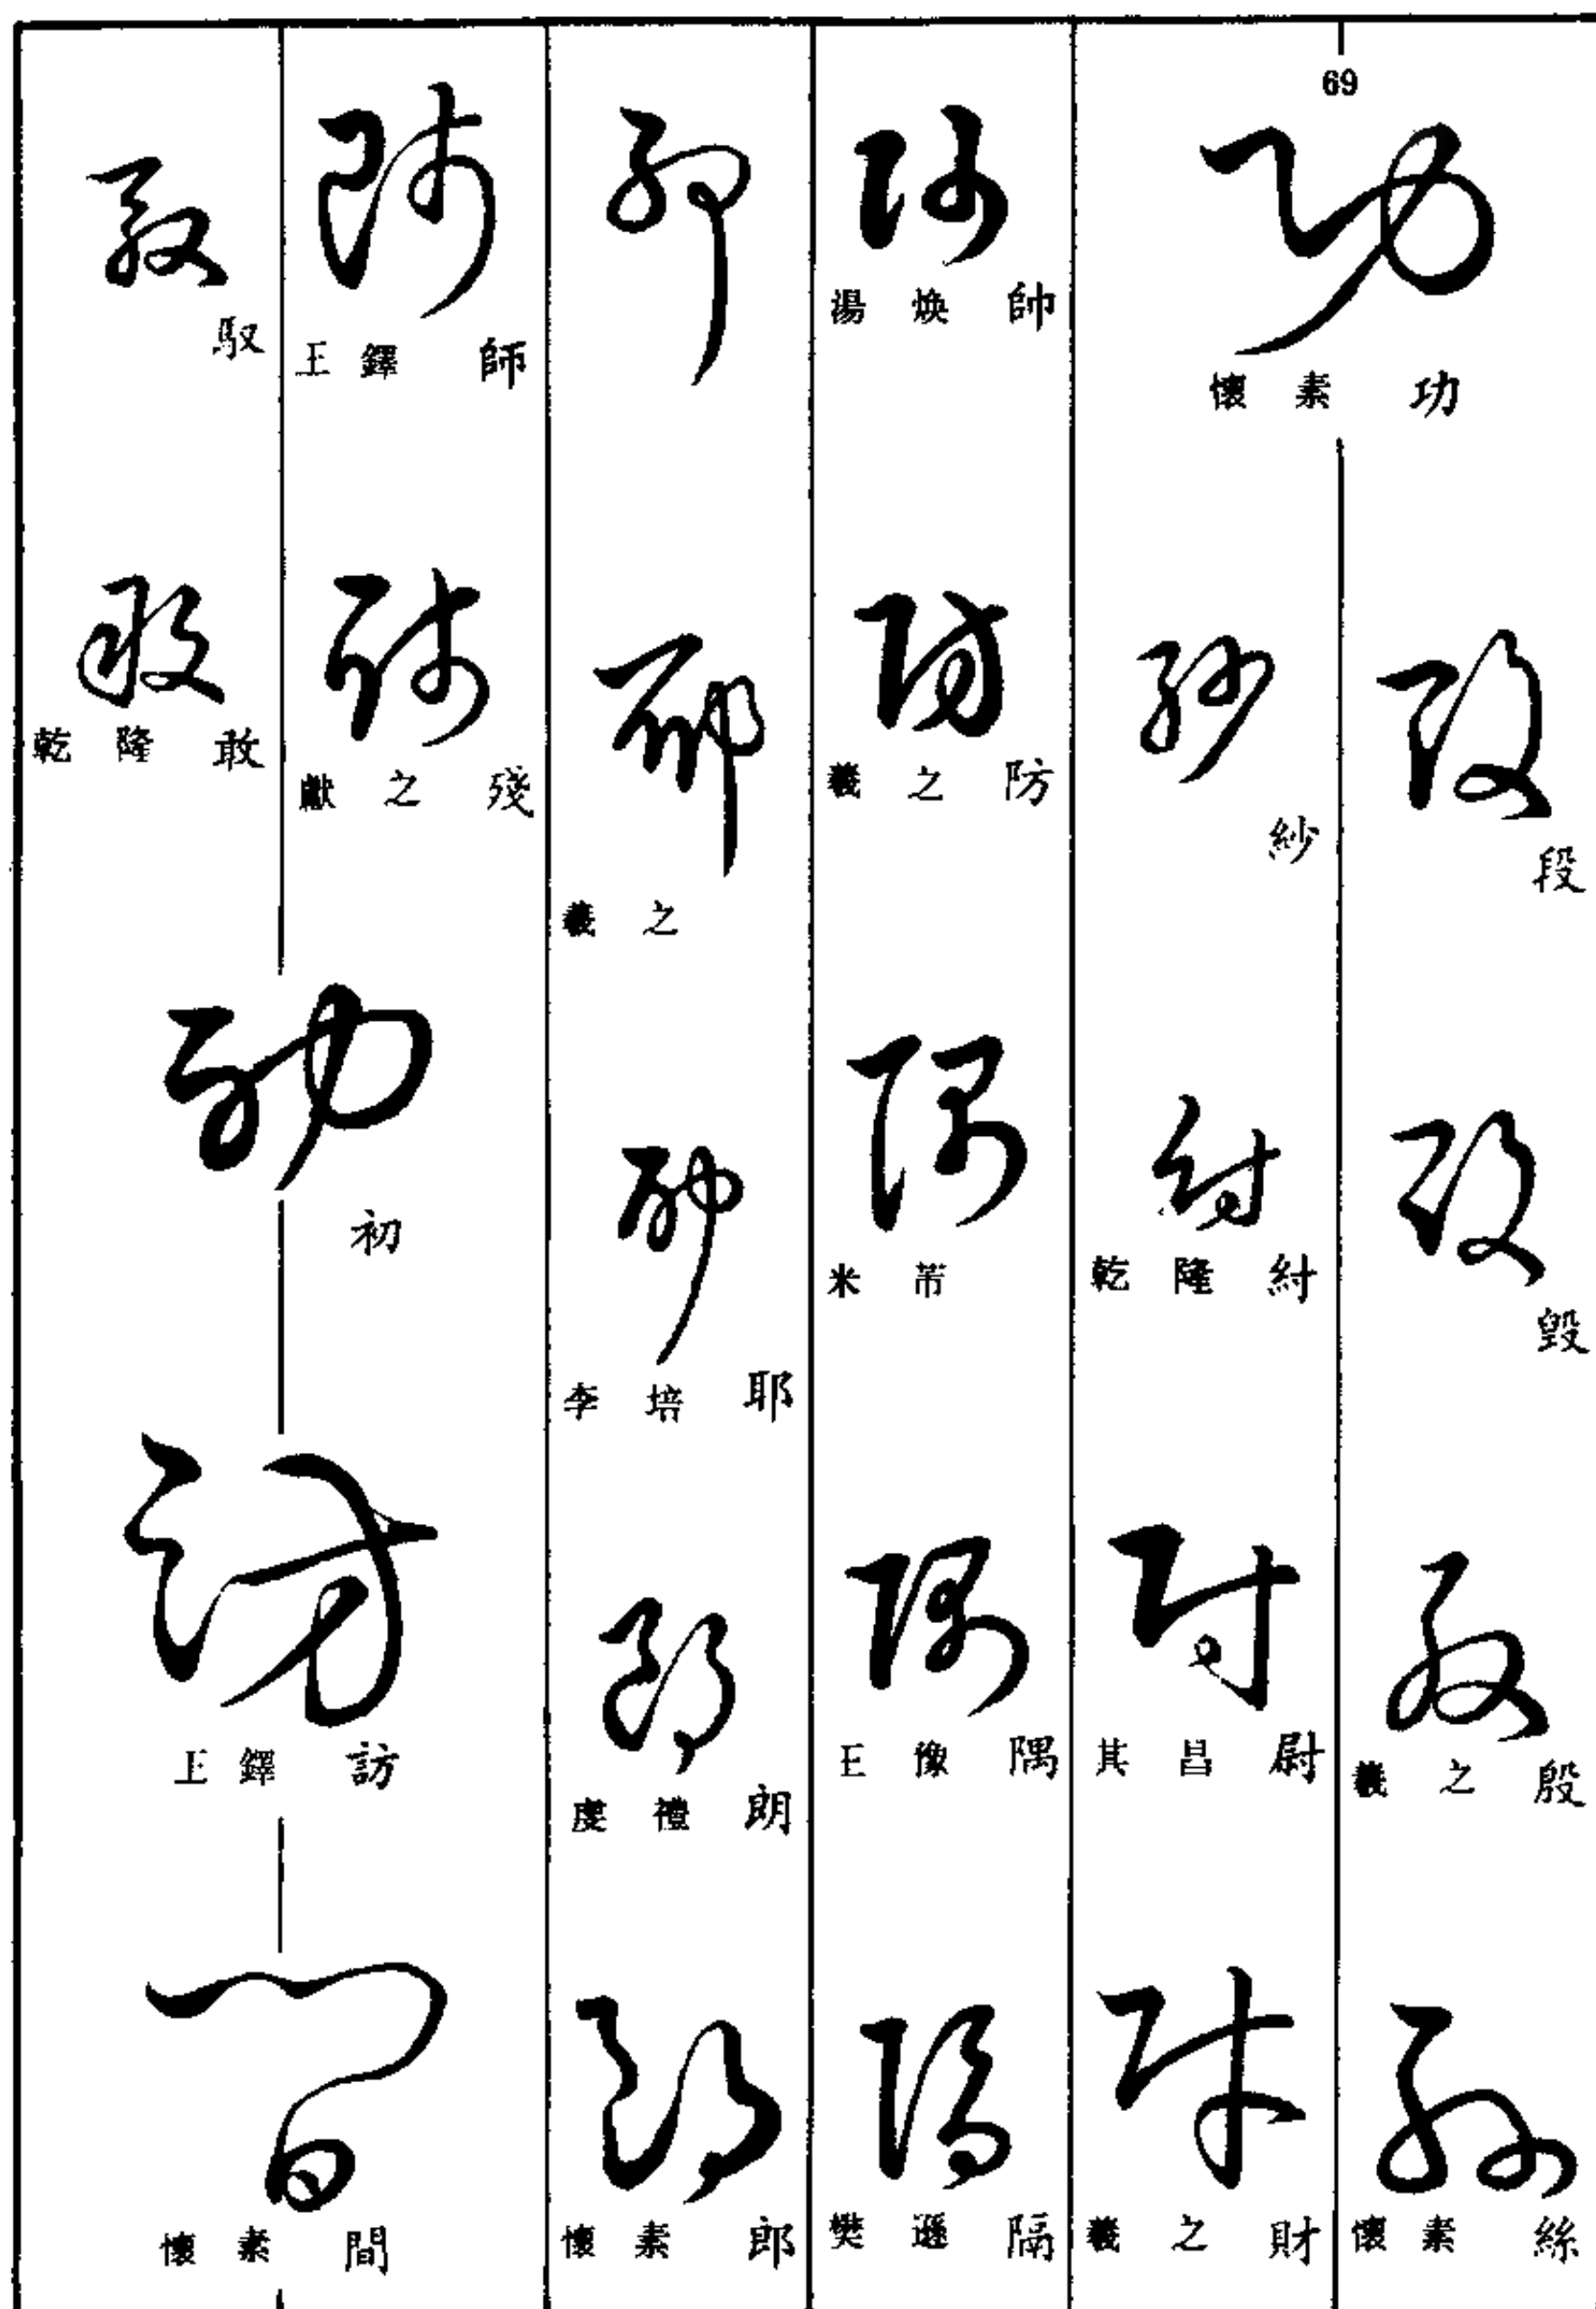 69
懷素 功
段
毀
羲之 殷
懷素 絲
紗
乾隆 紂
其昌 尉
羲之 財
湯煥 帥
羲之 防
米芾
王豫 隅
樊遜 隔
羲之
李培 耶
虔禮 朗
懷素 郎
王鐸 師
獻之 殘
馭
乾隆 敢
初
王鐸 訪
懷素 間